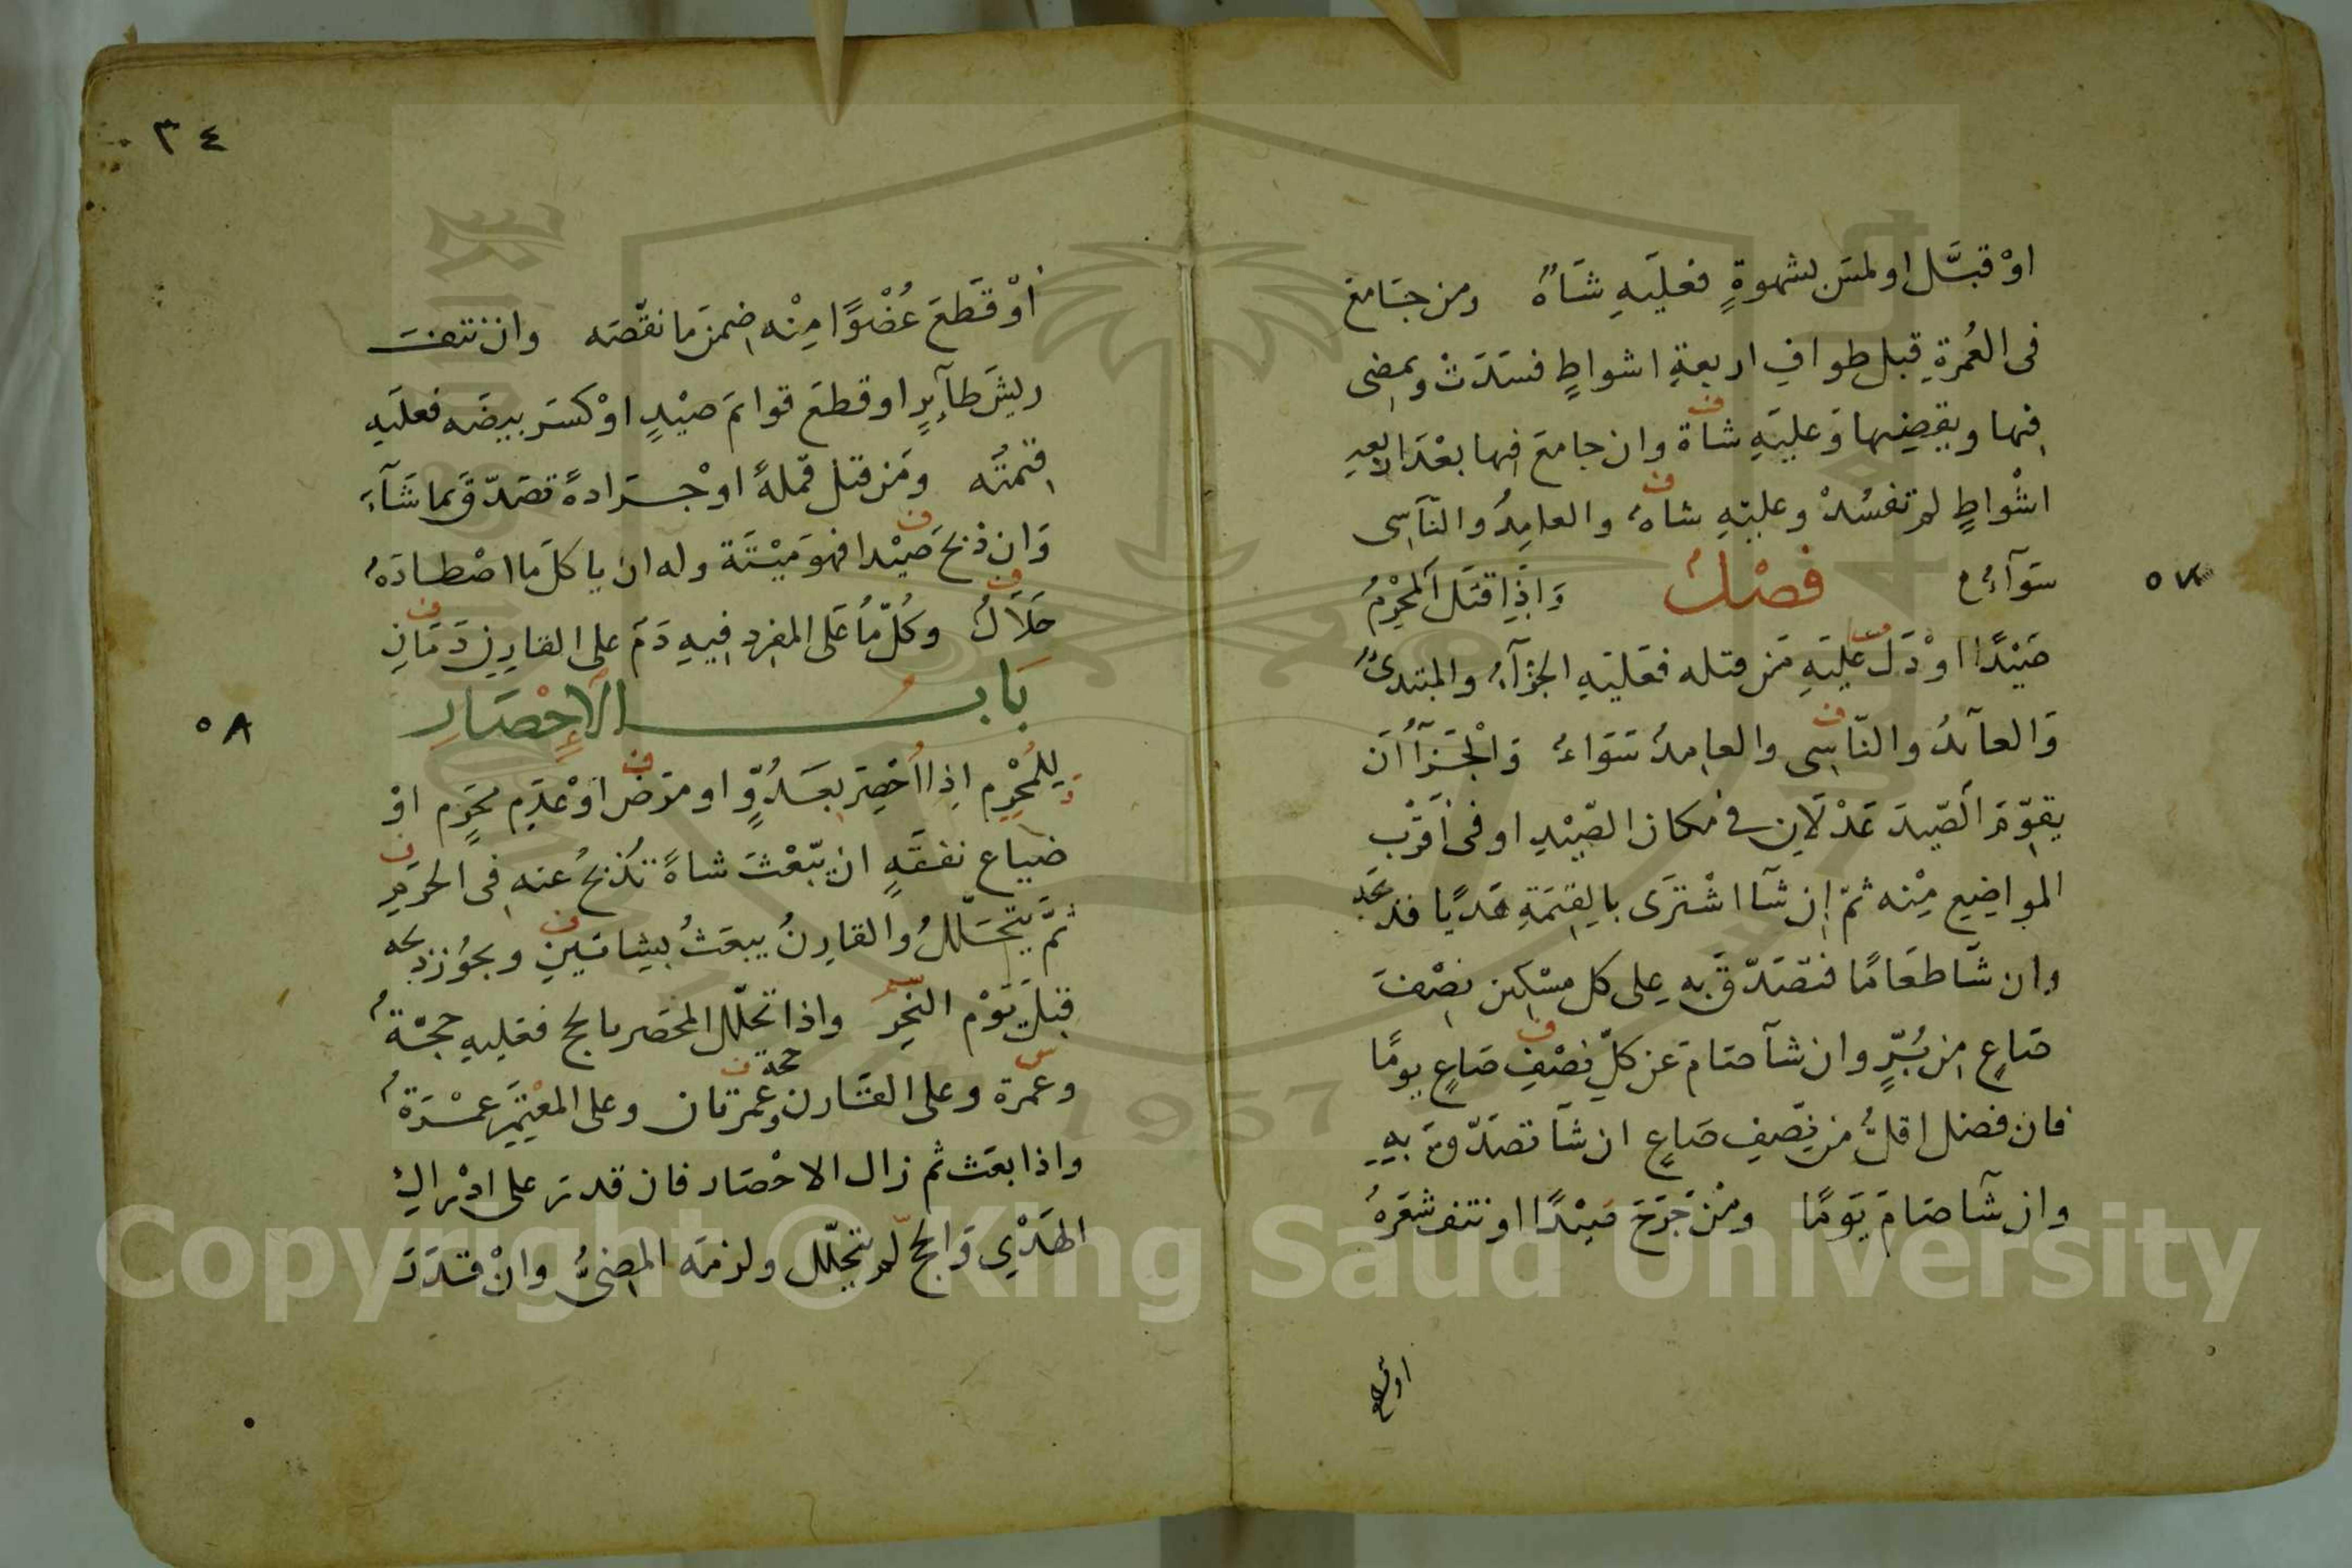 اوْ قبَّل او لمسَ لشهوةٍ فعليَهِ شَاةٌ ومن جَامعَ
فى العُمرةِ قبل طوافِ اربعةِ اشواطٍ فسَدَتْ ويمضِى
فِيها ويقضِيها وَعليَهِ شاة وان جامعَ فِيها بعْدَ اربعةِ
اشْواطٍ لم تفسُدْ وعليَهِ شاةٌ والعامِدُ والنّاَسِى
سَوآءٌ فصْلٌ وَاِذَا قتَل اَلمُحْرِمُ
٥٧
صَيْدًا اوْ دَلَّ عليَهِ مَن قتله فعَليَهِ الجزَآءُ والمبتدىُ
وَالعآئدُ والنّاسِى والعامِدُ سَوَاءٌ وَالْجَزَآاُ اَن
يقوِّمَ الصّيدَ عَدْلَانِ فى مكان الصّيْدِ او فى اَقرَبْ
المواضِعِ مِنْه ثمّ اِن شَآ اشْترَى بالِقيمَةِ هَدْيًا فذبحَه
وان شَآ طعَامًا فتصَدّقَ بهِ على كل مسْكِين نِصْفَ
صَاعٍ مِن بُرٍّ وان شآ صَامَ عَن كلِّ نِصْفِ صَاعٍ يومًا
فان فضل اقلُّ من نِصّفِ صَاعٍ ان شآ تصَدّقَ بِهِ
وان شآ صَامَ يَومًا ومَنْ جَرَحَ صَيْدًا او نتف شعَرهُ
او قطع
٣٤
اَوْ قَطَعَ عُضْوًا مِنْه ضِمنَ مَا نقّصَه وان نتفَ
ريشَ طآئِرٍ او قطعَ قوائمَ صَيْدٍ اوْ كَسَر بيضَه فعلَيهِ
قِيمتُه ومَن قتل قمّلةً اوْ جَرادةً تصَدّقَ بما شَآءَ
وَان ذبحَ صَيْدا فهوَ مَيْتَة وله ان ياكلَ مَا اصْطادَهُ
حَلَالٌ وكُلّ مَا عَلى المفرِد فِيهِ دَمٌ على القارِنِ دَمَانِ
بَابُ الاِحْصَارِ
٥٨
لِلمُحْرِمِ اِذا اُحْصِرَ بعَدُوٍّ او مَرَض اوْ عَدَمِ مَحرَمٍ اوْ
ضَياع نفقَةٍ ان يّبْعَثَ شاةً تُذبحُ عنه فِى الحرَمِ
ثمّ يتحَلّلُ والقارِنُ يبعَثُ بِشاتيَنِ ويجوُز ذبحه
قبَل يَوْم النَحرِ واذا تحَلّل المحصَر بالحج فعَليهِ حجّةٌ
وعمرَة وعلى القَارن حجة وعمرتان وعلى المعْتمِرِ عمْرَةٌ
واذا بعَث ثم زال الاحْصَار فان قدرَ على ادْراكِ
الهَدْىِ وَالحجّ لم يتحَلّل ولزمَه المضِىُّ وانْ قدَرَ